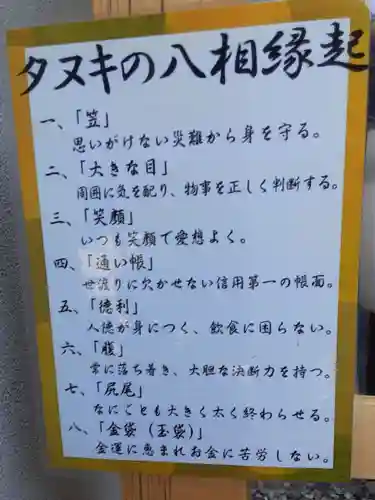 タヌキの八相縁起
一、「笠」
思いがけない災難から身を守る。
二、「大きな目」
周囲に気を配り、物事を正しく判断する。
三、「笑顔」
いつも笑顔で愛想よく。
四、「通い帳」
世渡りに欠かせない信用第一の帳面。
五、「徳利」
人徳が身につく、飲食に困らない。
六、「腹」
常に落ち着き、大胆な決断力を持つ。
七、「尻尾」
なにごとも大きく太く終わらせる。
八、「金袋(玉袋)」
金運に恵まれお金に苦労しない。